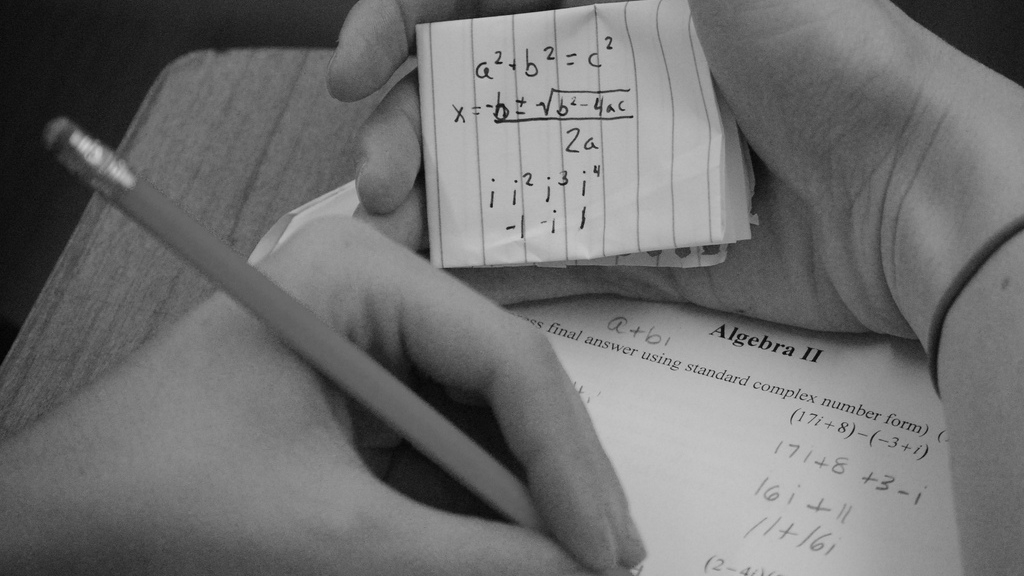 a² + b² = c²
x = -b ± √b² - 4ac
2a
i i² i³ i⁴
-1 -i 1
a+bi
Algebra II
final answer using standard complex number form) (
(17i+8)–(–3+i)
17i+8 +3-i
16i + 11
11+16i
(2–4i)(